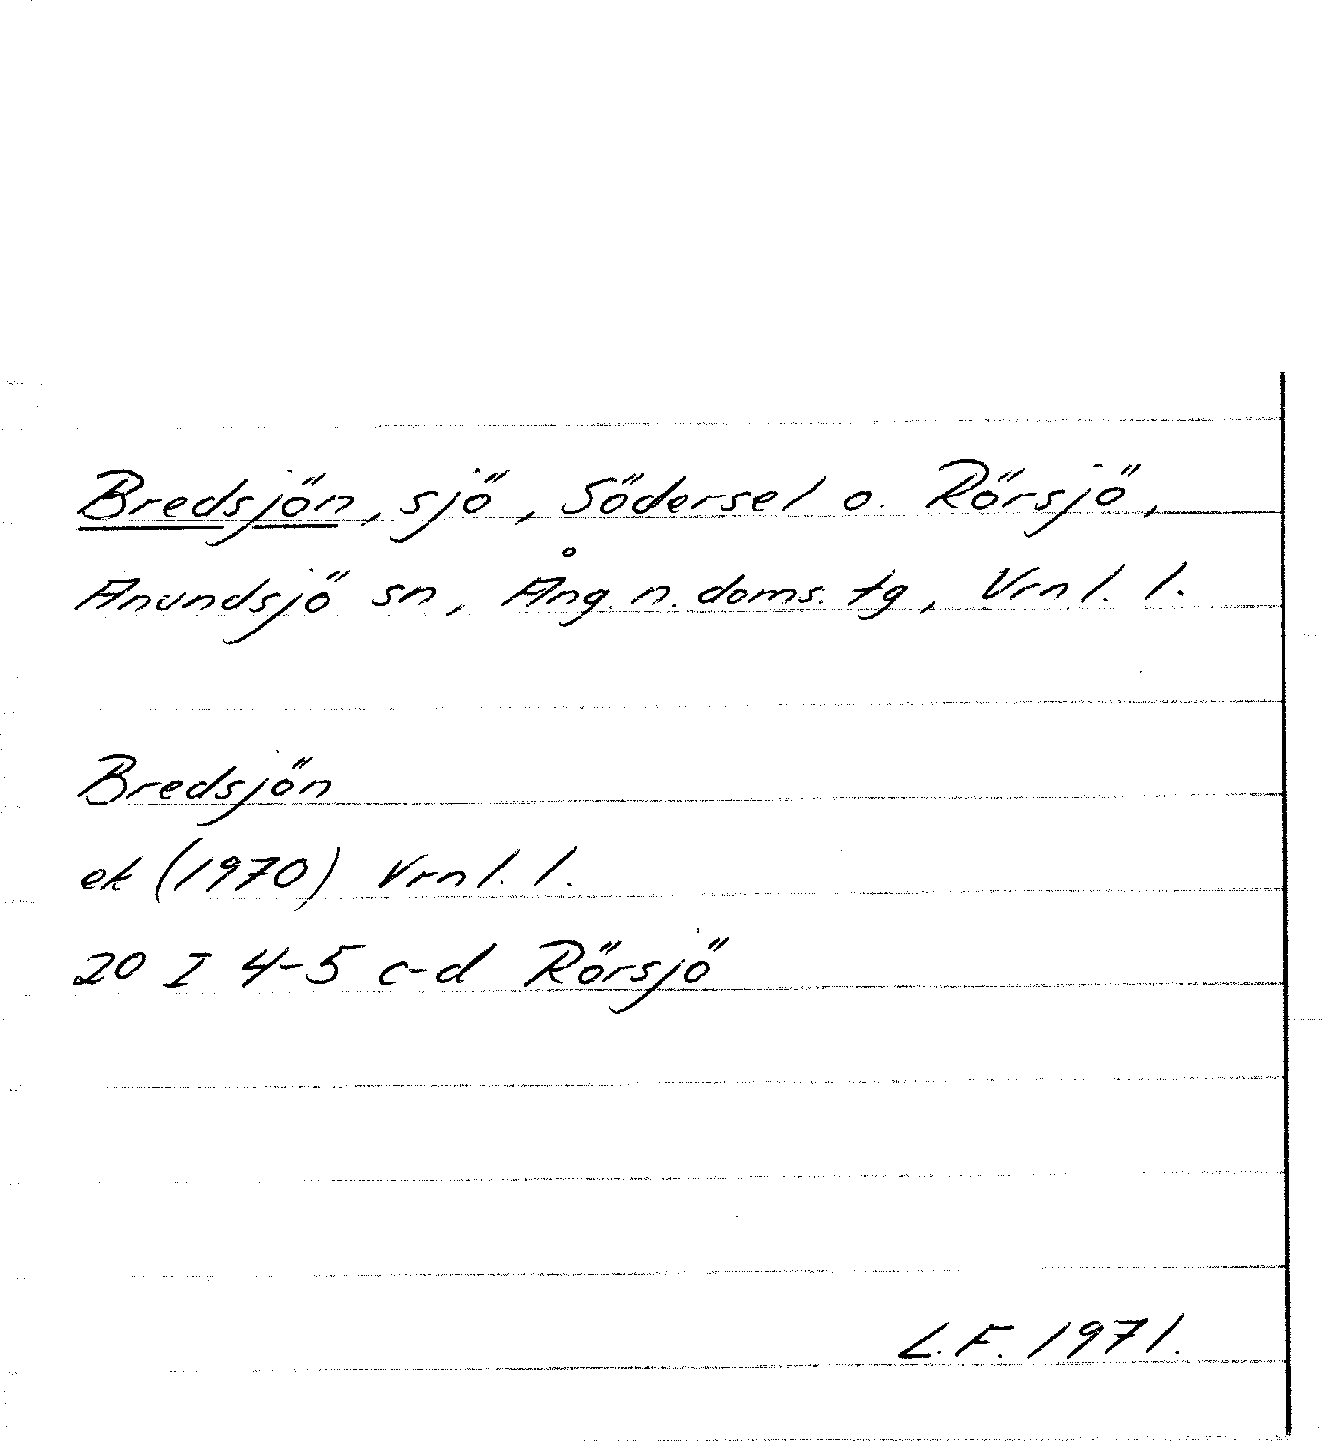 Bredsjön, sjö, Södersel o. Rörsjö,
Anundsjö sn, Ång. n. doms. tg, Vrnl. l.
Bredsjön
ek (1970) Vrnl. l.
20 I 4-5 c-d Rörsjö
L.F. 1971.